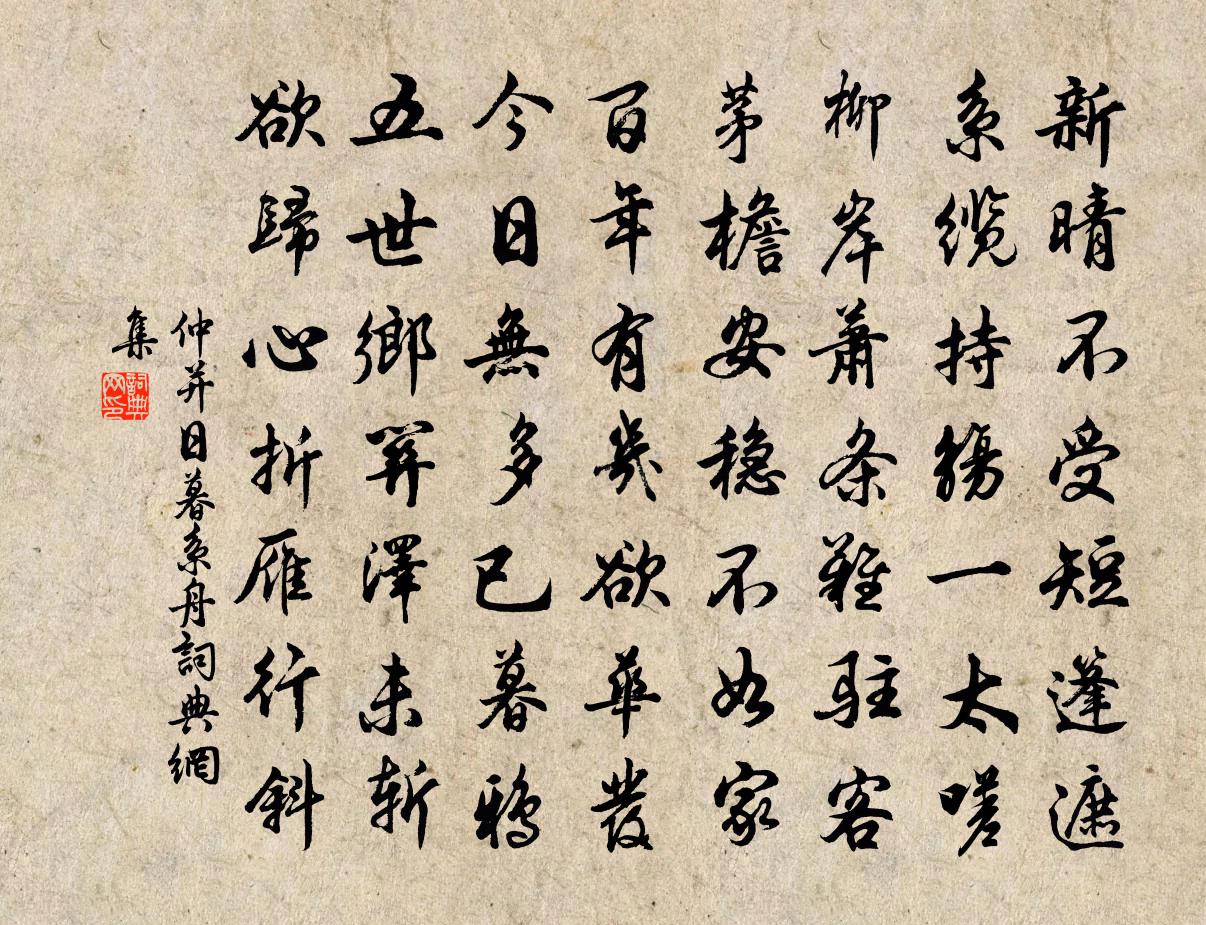 新晴不受短蓬遮
系缆持觞一太嗟
柳岸蕭条難駐客
茅檐安稳不如家
百年有幾欲華發
今日無多已暮鴉
五世鄉關澤未斬
欲歸心折雁行斜
仲并日暮系舟詞典網
集
詞典网印